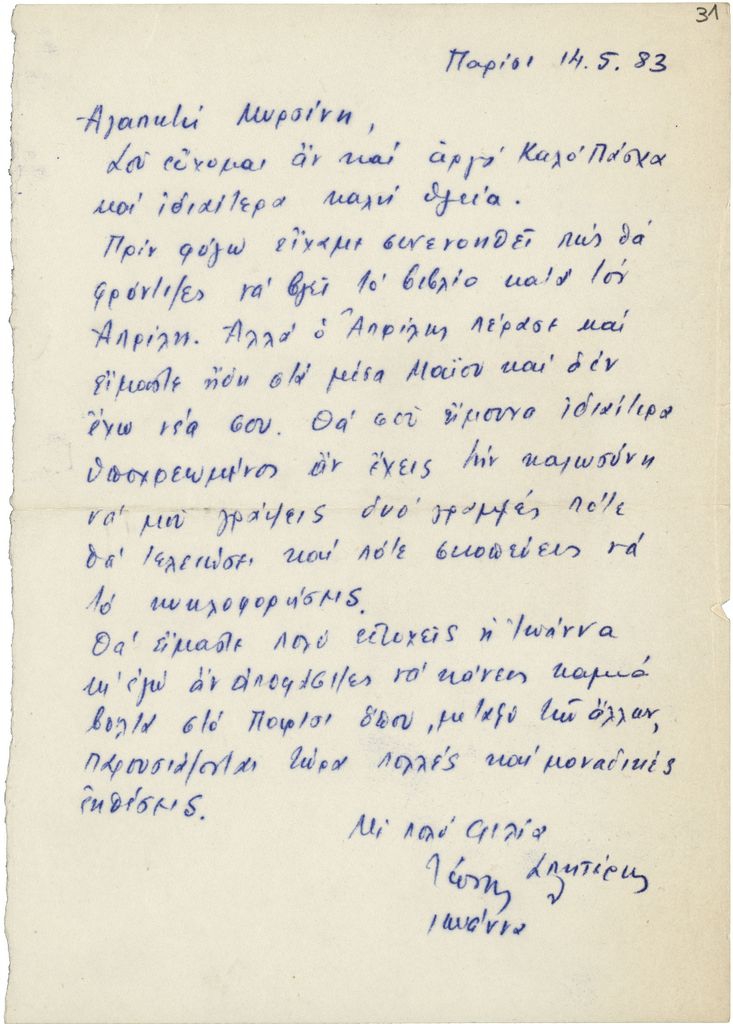 31
Παρίσι 14.5.83
Αγαπητή Μυρσίνη,
Σοῦ εὔχομαι ἄν καί ἀργά Καλό Πάσχα
καί ἰδιαίτερα καλή ὑγεία.
Πρίν φύγω εἴχαμε συνενοηθεῖ πώς θά
φρόντιζες νά βγεῖ τό βιβλίο κατά τόν
Ἀπρίλη. Ἀλλά ὁ Ἀπρίλης πέρασε καί
εἴμαστε ἤδη στά μέσα Μαΐου καί δέν
ἔχω νέα σου. Θά σοῦ ἤμουνα ἰδιαίτερα
ὑποχρεωμένος ἄν ἔχεις τήν καλωσύνη
νά μοῦ γράψεις δυό γραμμές πότε
θά τελειώσει καί πότε σκοπεύεις νά
τό κυκλοφορήσεις.
Θά εἴμαστε πολύ εὐτυχεῖς ἡ Ἰωάννα
κι' ἐγώ ἄν ἀποφάσιζες νά κάνεις καμιά
βόλτα στό Παρίσι ὅπου, μεταξύ τῶν ἄλλων,
παρουσιάζονται τώρα πολλές καί μοναδικές
ἐκθέσεις.
Μέ πολύ φιλία
Τώνης Σπητέρης
Ιωάννα